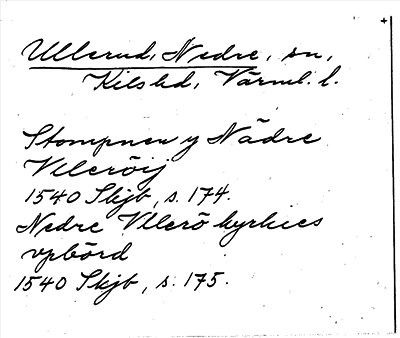 Ullerud, Nedre, sn,
Kils hd, Värml. l.
Stompnen y Nädre
Vlleröij
1540 Skjb, s. 174.
Nedre Vllerö kyrkies
vpbörd
1540 Skjb, s. 175.